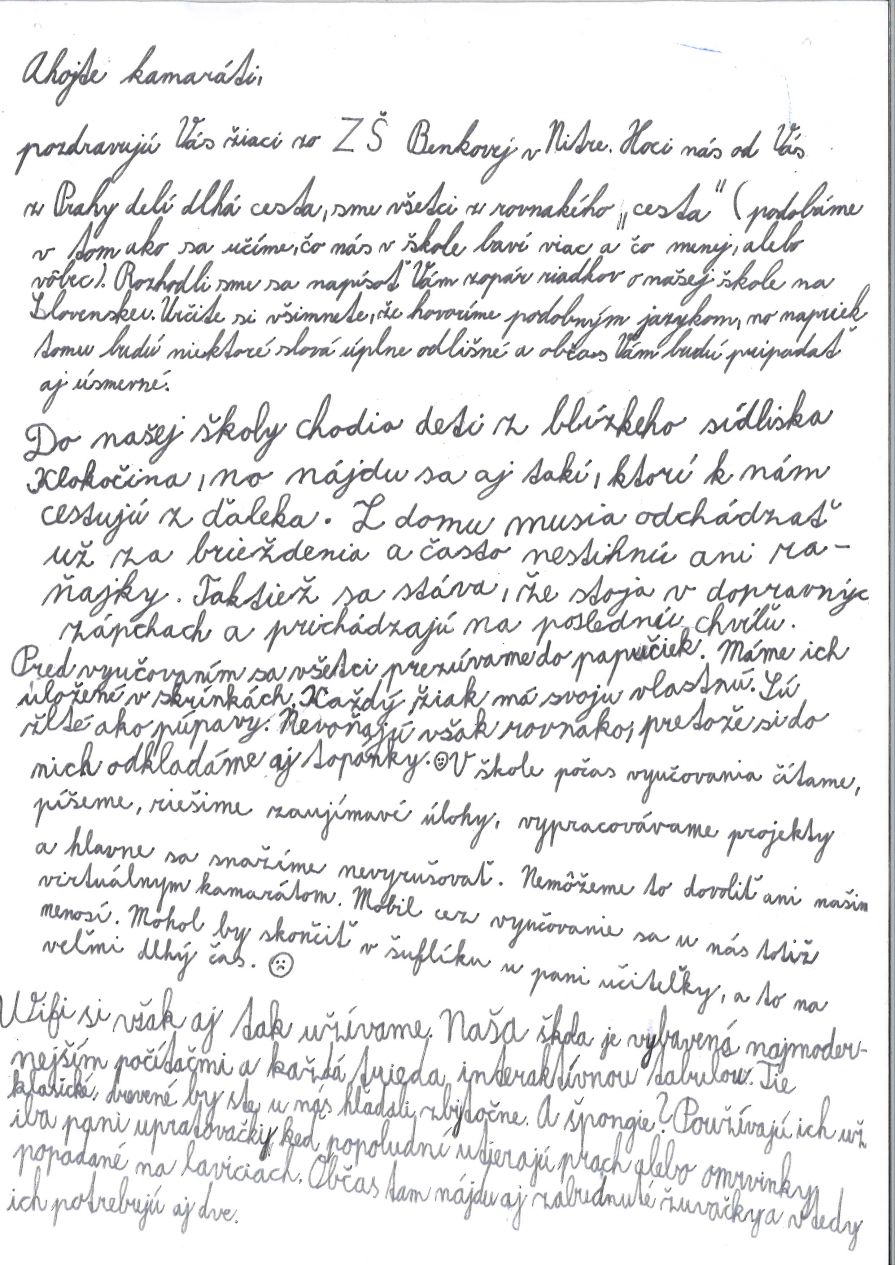 Ahojte kamaráti,
pozdravujú Vás žiaci zo ZŠ Benkovej v Nitre. Hoci nás od Vás
z Prahy delí dlhá cesta, sme všetci z rovnakého „cesta" (podobáme
v tom ako sa učíme, čo nás v škole baví viac a čo menej, alebo
vôbec). Rozhodli sme sa napísať Vám zopár riadkov o našej škole na
Slovensku. Určite si všimnete, že hovoríme podobným jazykom, no napriek
tomu budú niektoré slová úplne odlišné a občas Vám budú pripadať
aj úsmevné.
Do našej školy chodia deti z blízkeho sídliska
Klokočina, no nájdu sa aj takí, ktorí k nám
cestujú z ďaleka. Z domu musia odchádzať
už za brieždenia a často nestihnú ani ra-
ňajky. Taktiež sa stáva, že stoja v dopravnýc
zápchach a prichádzajú na poslednú chvíľu.
Pred vyučovaním sa všetci prezúvame do papučiek. Máme ich
uložené v skrinkách. Každý žiak má svoju vlastnú. Sú
žlté ako púpavy. Nevoňajú však rovnako, pretože si do
nich odkladáme aj topánky. ☺ V škole počas vyučovania čítame,
píšeme, riešime zaujímavé úlohy, vypracovávame projekty
a hlavne sa snažíme nevyrušovať. Nemôžeme to dovoliť ani našim
virtuálnym kamarátom. Mobil cez vyučovanie sa u nás totiž
nenosí. Mohol by skončiť v šuflíku u pani učiteľky, a to na
veľmi dlhý čas. ☹
Wifi si však aj tak užívame. Naša škola je vybavená najmoder-
nejším počítačmi a každá trieda interaktívnou tabuľou. Tie
klasické, drevené by ste u nás hľadali zbytočne. A špongie? Používajú ich už
iba pani upratovačky, keď popoludní utierajú prach alebo omrvinky
popadané na laviciach. Občas tam nájdu aj zabudnuté žuvačky a vtedy
ich potrebujú aj dve.